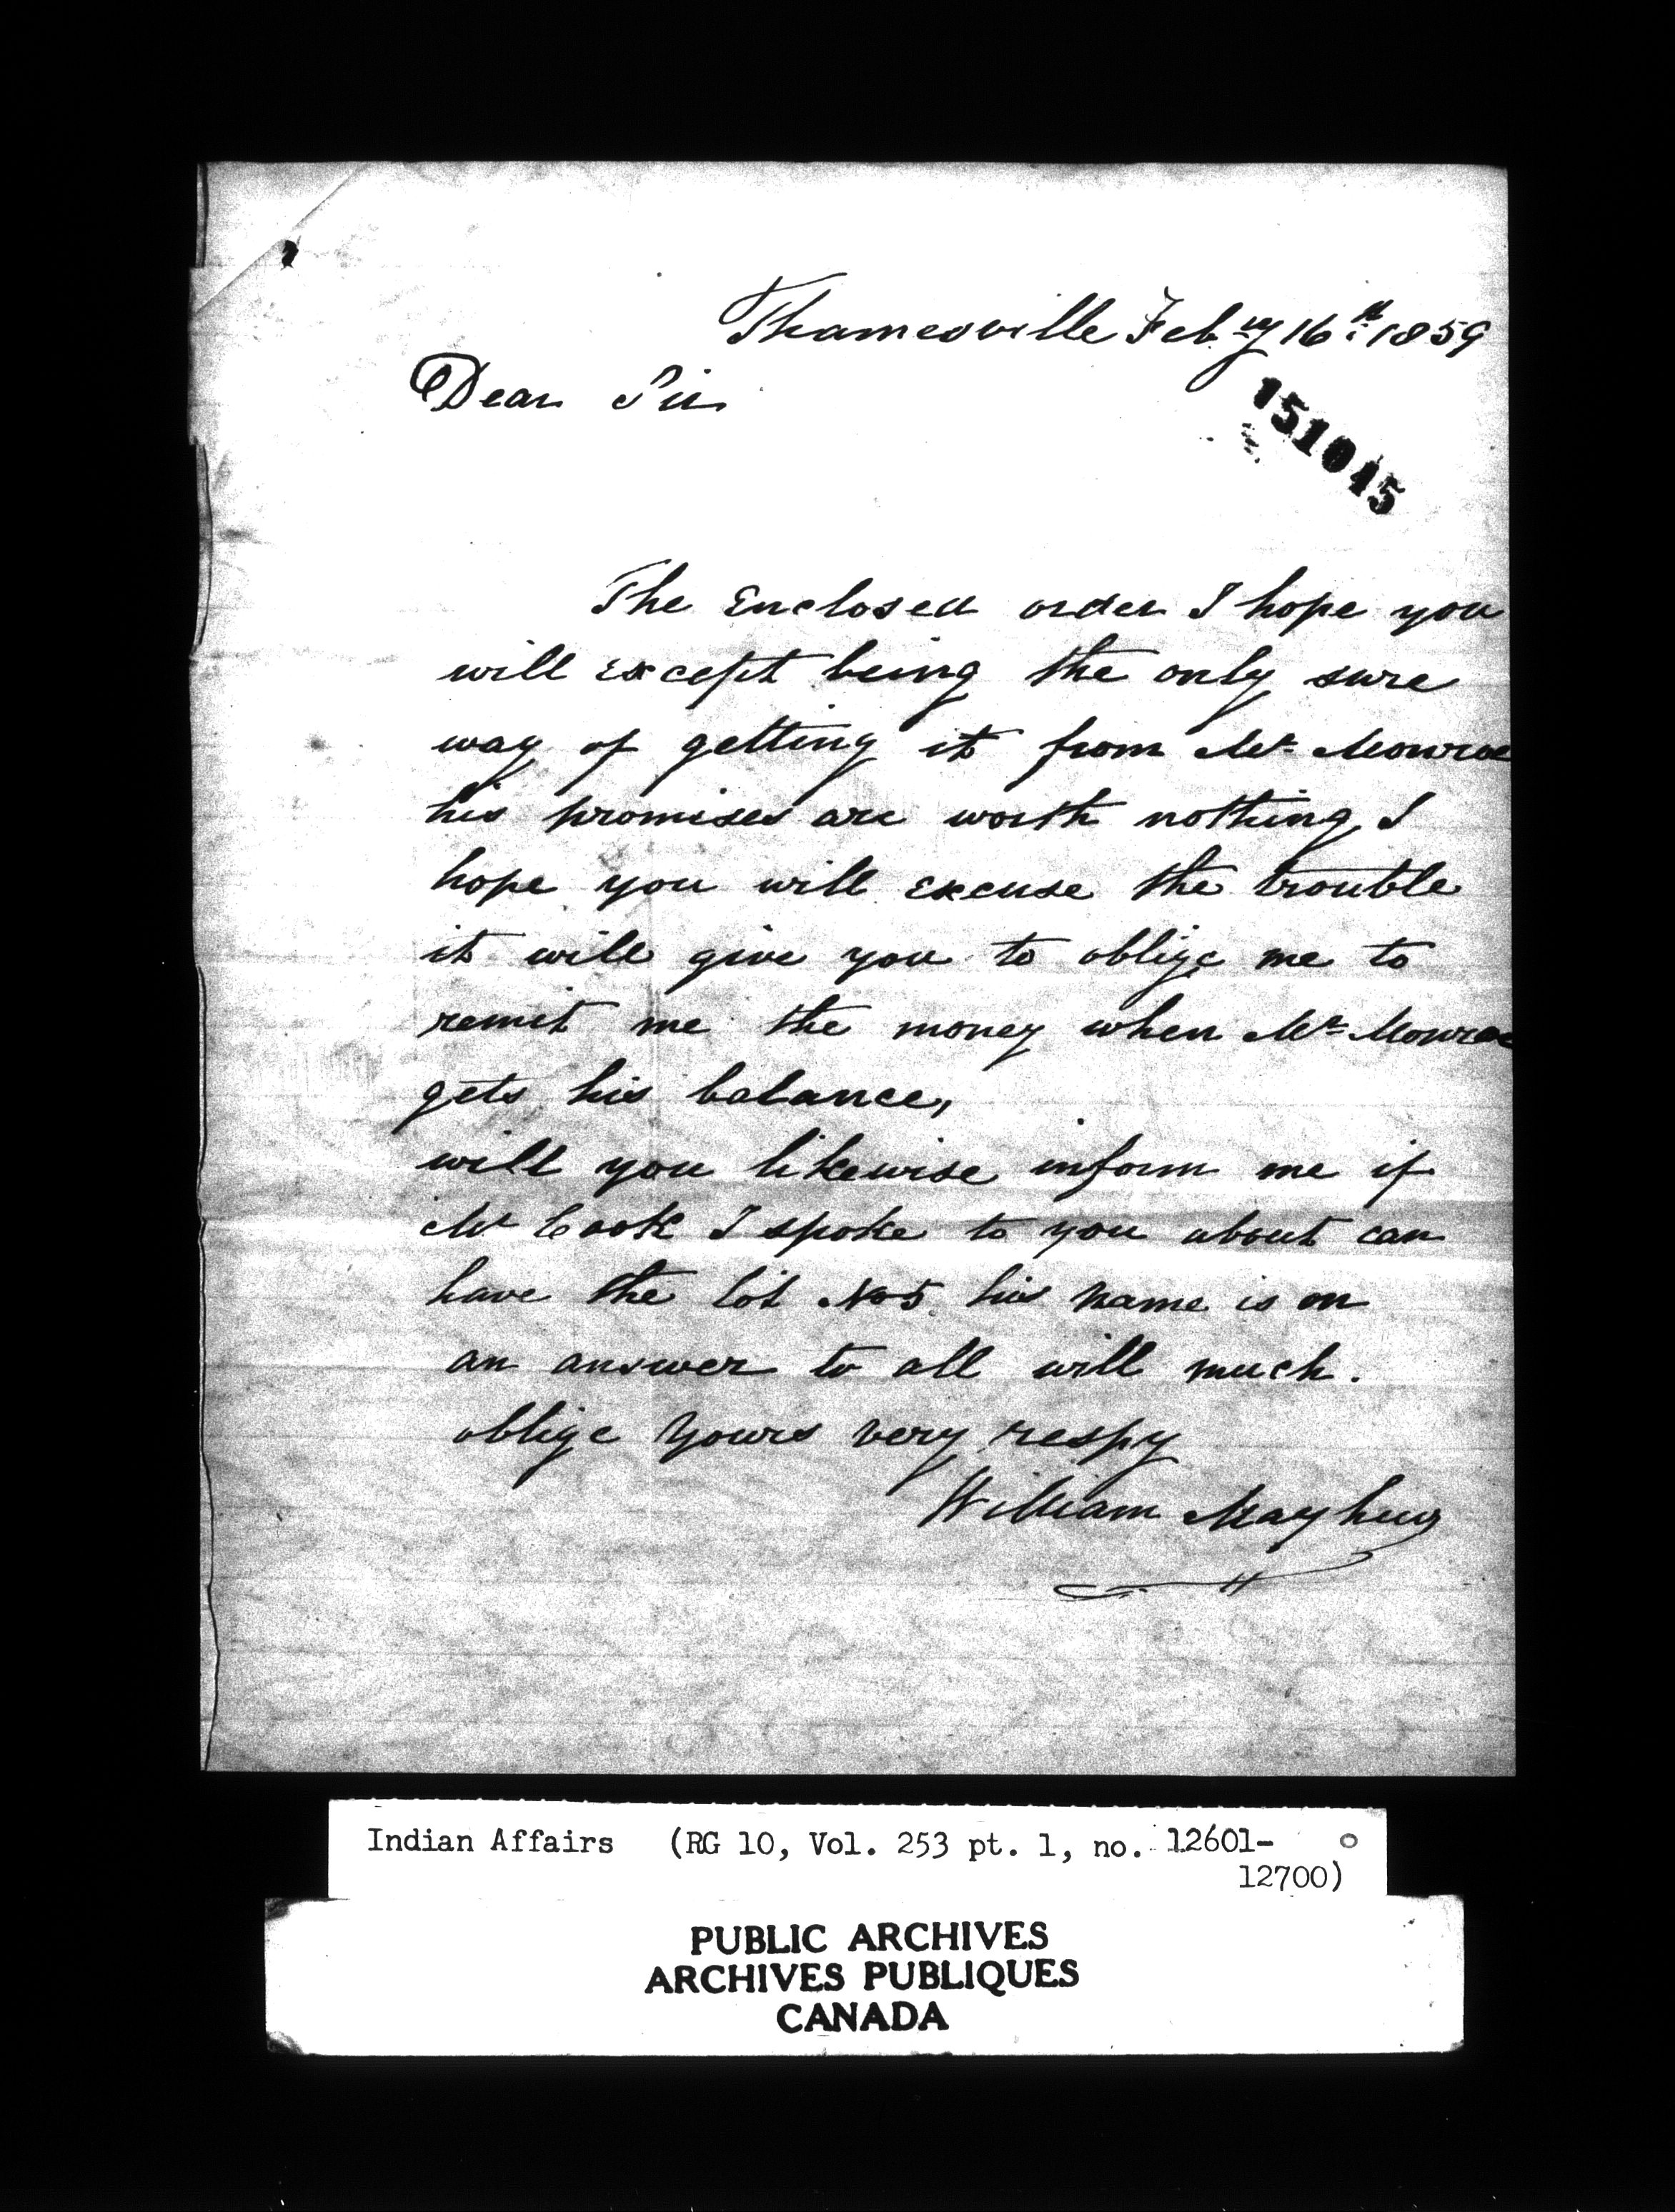 Thamesville Feb.ry 16th 1859
Dear Sir
151045
The Enclosed order I hope you
will except being the only sure
way of getting it from Mr Monroe
his promises are worth nothing, I
hope you will excuse the trouble
it will give you to oblige me to
remit me the money when Mr Monroe
gets his balance,
will you likewise inform me if
Mr Cook I spoke to you about can
have the lot No 5 his name is on
an answer to all will much.
oblige Yours very respy
William Mayhew
Indian Affairs (RG 10, Vol. 253 pt. 1, no. 12601-
12700)
PUBLIC ARCHIVES
ARCHIVES PUBLIQUES
CANADA